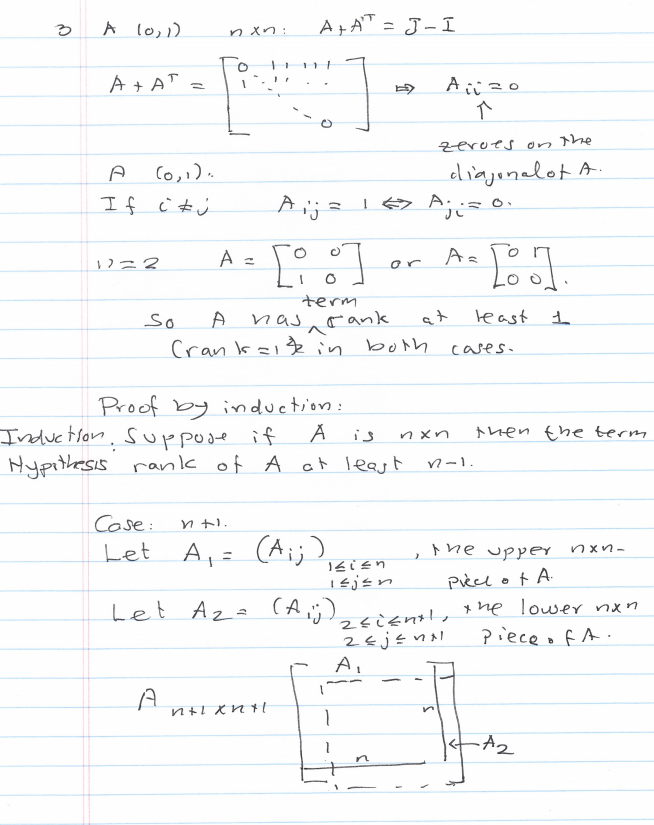 3 A (0,1) n×n: A+A^T = J-I
A + A^T = [0 1 1 1 1 1 1 ... 0] ⇒ A_ii = 0
↑
zeroes on the
diagonal of A.
A (0,1).
If i≠j A_ij = 1 ⇔ A_ji = 0.
n=2 A = [0 0 1 0] or A = [0 1 0 0].
term
So A has ^ rank at least 1
(rank=1 in both cases.
Proof by induction:
Induction: Suppose if A is n×n then the term
Hypithesis rank of A at least n-1.
Case: n+1.
Let A_1 = (A_ij) 1≤i≤n 1≤j≤n, the upper n×n-
piece of A.
Let A_2 = (A_ij) 2≤i≤n+1, 2≤j≤n+1 the lower n×n
piece of A.
A_1
A n+1×n+1 n
←A_2
n